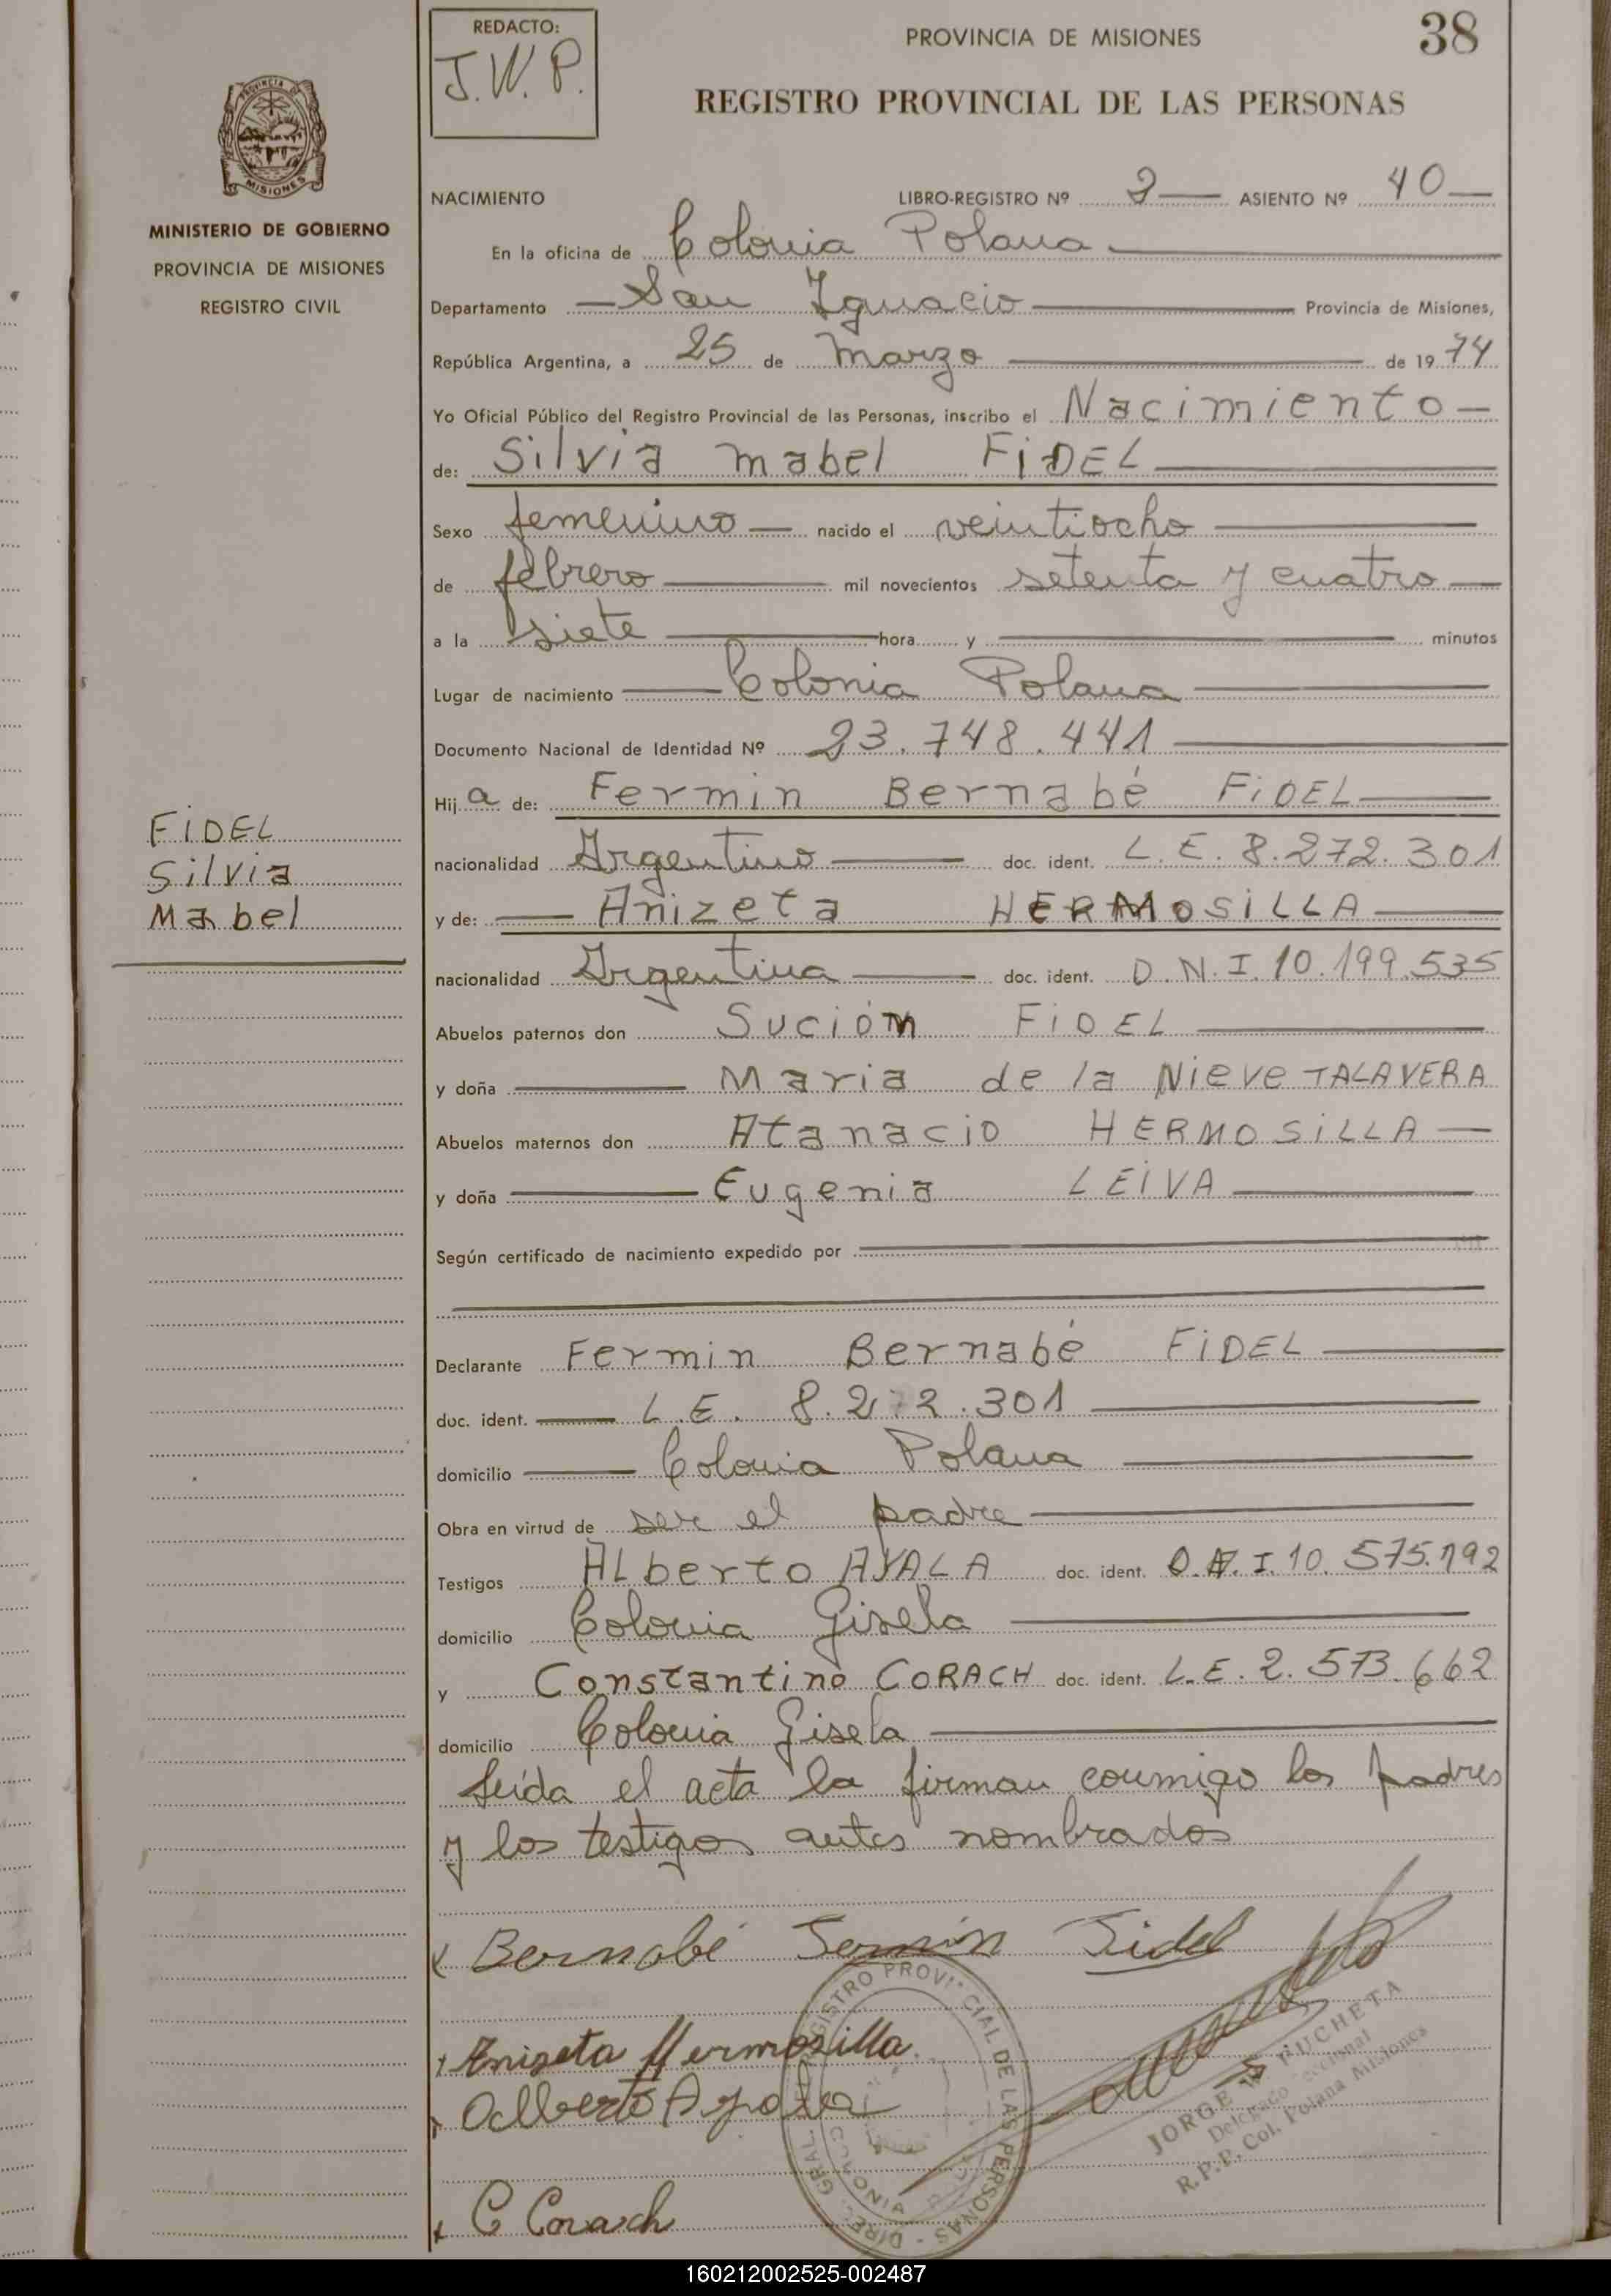 REDACTO:
J.W.P.
PROVINCIA DE MISIONES
38
REGISTRO PROVINCIAL DE LAS PERSONAS
MISIONES
MINISTERIO DE GOBIERNO
PROVINCIA DE MISIONES
REGISTRO CIVIL
NACIMIENTO LIBRO-REGISTRO Nº 2 ASIENTO Nº 40
En la oficina de Colonia Polana
Departamento San Ignacio Provincia de Misiones,
República Argentina, a 25 de Marzo de 1974
Yo Oficial Público del Registro Provincial de las Personas, inscribo el Nacimiento
de: Silvia Mabel FIDEL
Sexo femenino nacido el veintiocho
de febrero mil novecientos setenta y cuatro
a la siete hora y minutos
Lugar de nacimiento Colonia Polana
Documento Nacional de Identidad Nº 23.748.441
Hija de: Fermin Bernabé FIDEL
FIDEL
Silvia
Mabel
nacionalidad Argentino doc. ident. L.E. 8.272.301
y de: Anizeta HERMOSILLA
nacionalidad Argentina doc. ident. D.N.I. 10.199.535
Abuelos paternos don Sución FIDEL
y doña Maria de la Nieve TALAVERA
Abuelos maternos don Atanacio HERMOSILLA
y doña Eugenia LEIVA
Según certificado de nacimiento expedido por
Declarante Fermin Bernabé FIDEL
doc. ident. L.E. 8.272.301
domicilio Colonia Polana
Obra en virtud de ser el padre
Testigos ALberto AYALA doc. ident. D.N.I. 10.575.192
domicilio Colonia Gisela
y Constantino CORACH doc. ident. L.E. 2.573.662
domicilio Colonia Gisela
Leida el acta la firman conmigo los padres
y los testigos antes nombrados
Bernabé Fermín Fidel
Anizeta Hermosilla
Alberto Ayala
C Corach
DIREC. GRAL. REGISTRO PROVINCIAL DE LAS PERSONAS
JORGE W. PUCHETA
Delegado Seccional
R.P.P. Col. Polana Misiones
160212002525-002487